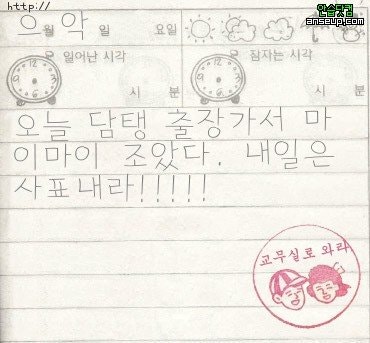 http://
안습닷컴
anseup.com
으월 악일 요일
일어난 시각 잠자는 시각
시 분 시 분
오늘 담탱 출장가서 마
이마이 조았다. 내일은
사표내라!!!!!
교무실로 와라